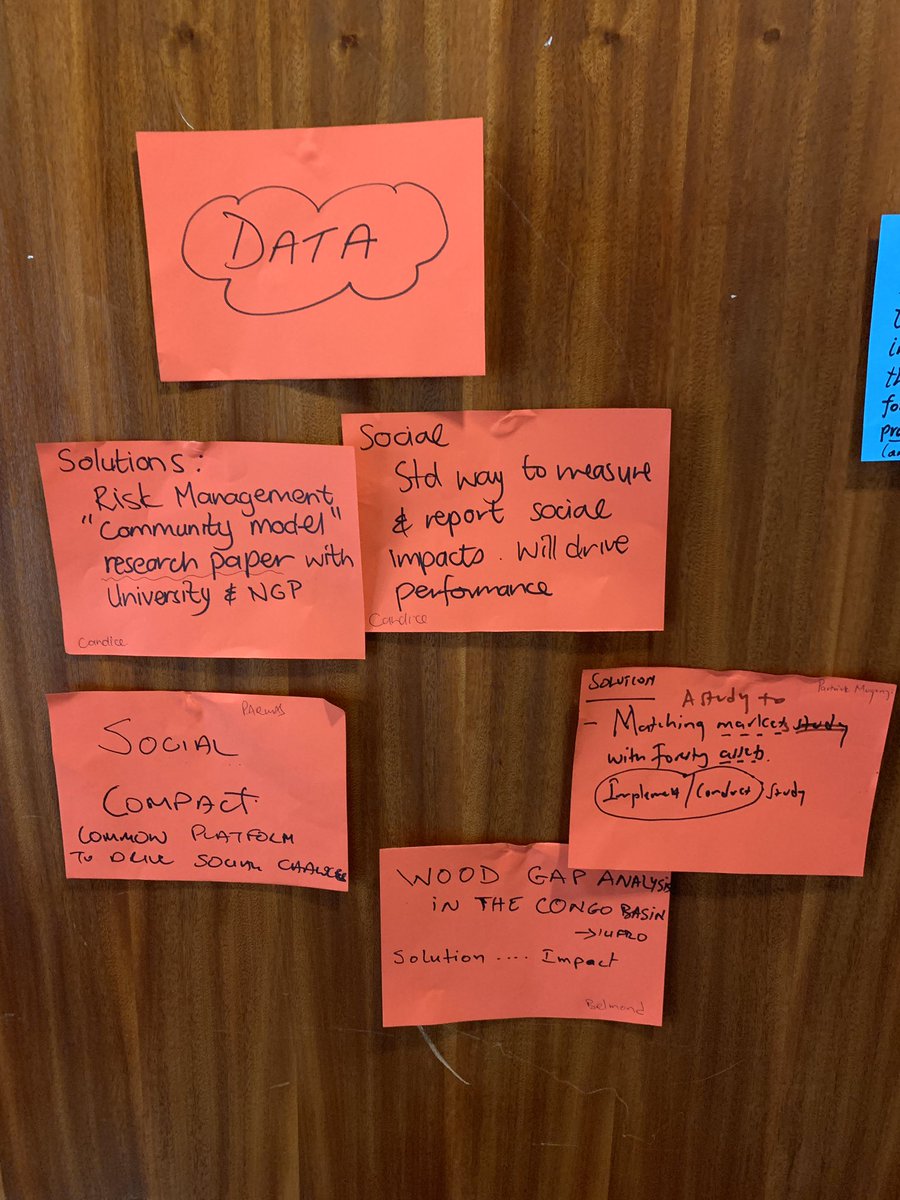 DATA
Solutions:
Risk Management
"Community model"
research paper with
University & NGP
Candice
Social
Std way to measure
& report social
impacts. Will drive
performance
Candice
SOCIAL
COMPACT.
COMMON PLATFORM
TO DRIVE SOCIAL
SOLUTION
A study to
- Matching markets study
with Forestry assets.
Implement / Conduct study
Patrick
WOOD GAP ANALYSIS
IN THE CONGO BASIN
→ IUFRO
Solution .... Impact
Belmond